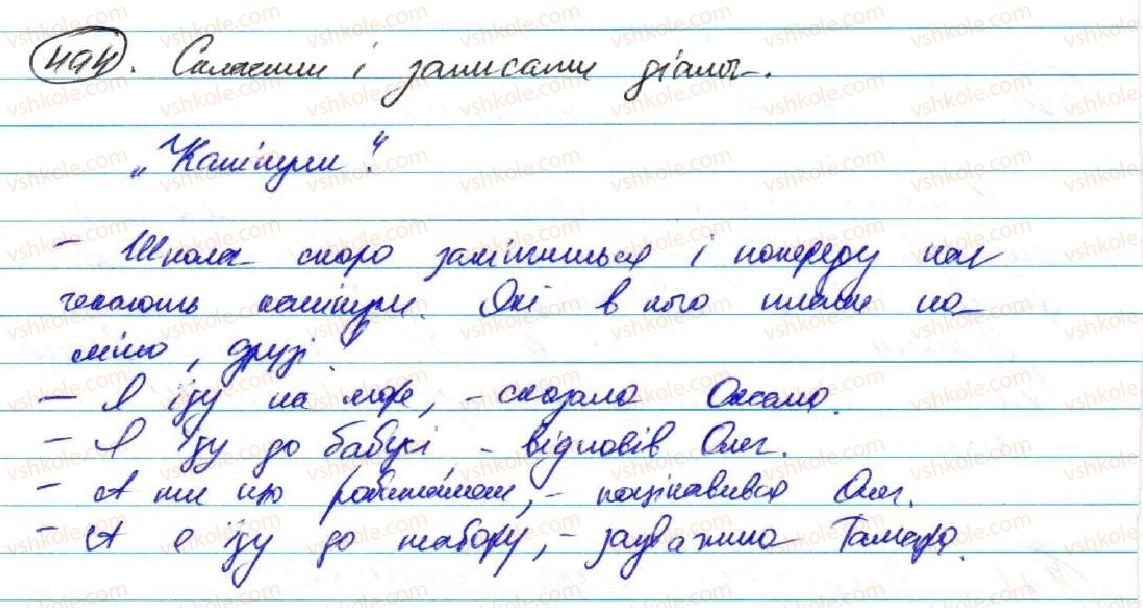 494. Скласти і записати діалог.
„Канікули".
– Школа скоро закінчиться і попереду нас
чекають канікули. Які в кого плани на
літо, друзі.
– Я їду на море, – сказала Оксана.
– Я їду до бабусі – відповів Олег.
– А ти що робитимеш, – поцікавився Олег.
– А я їду до табору, – зауважила Тамара.